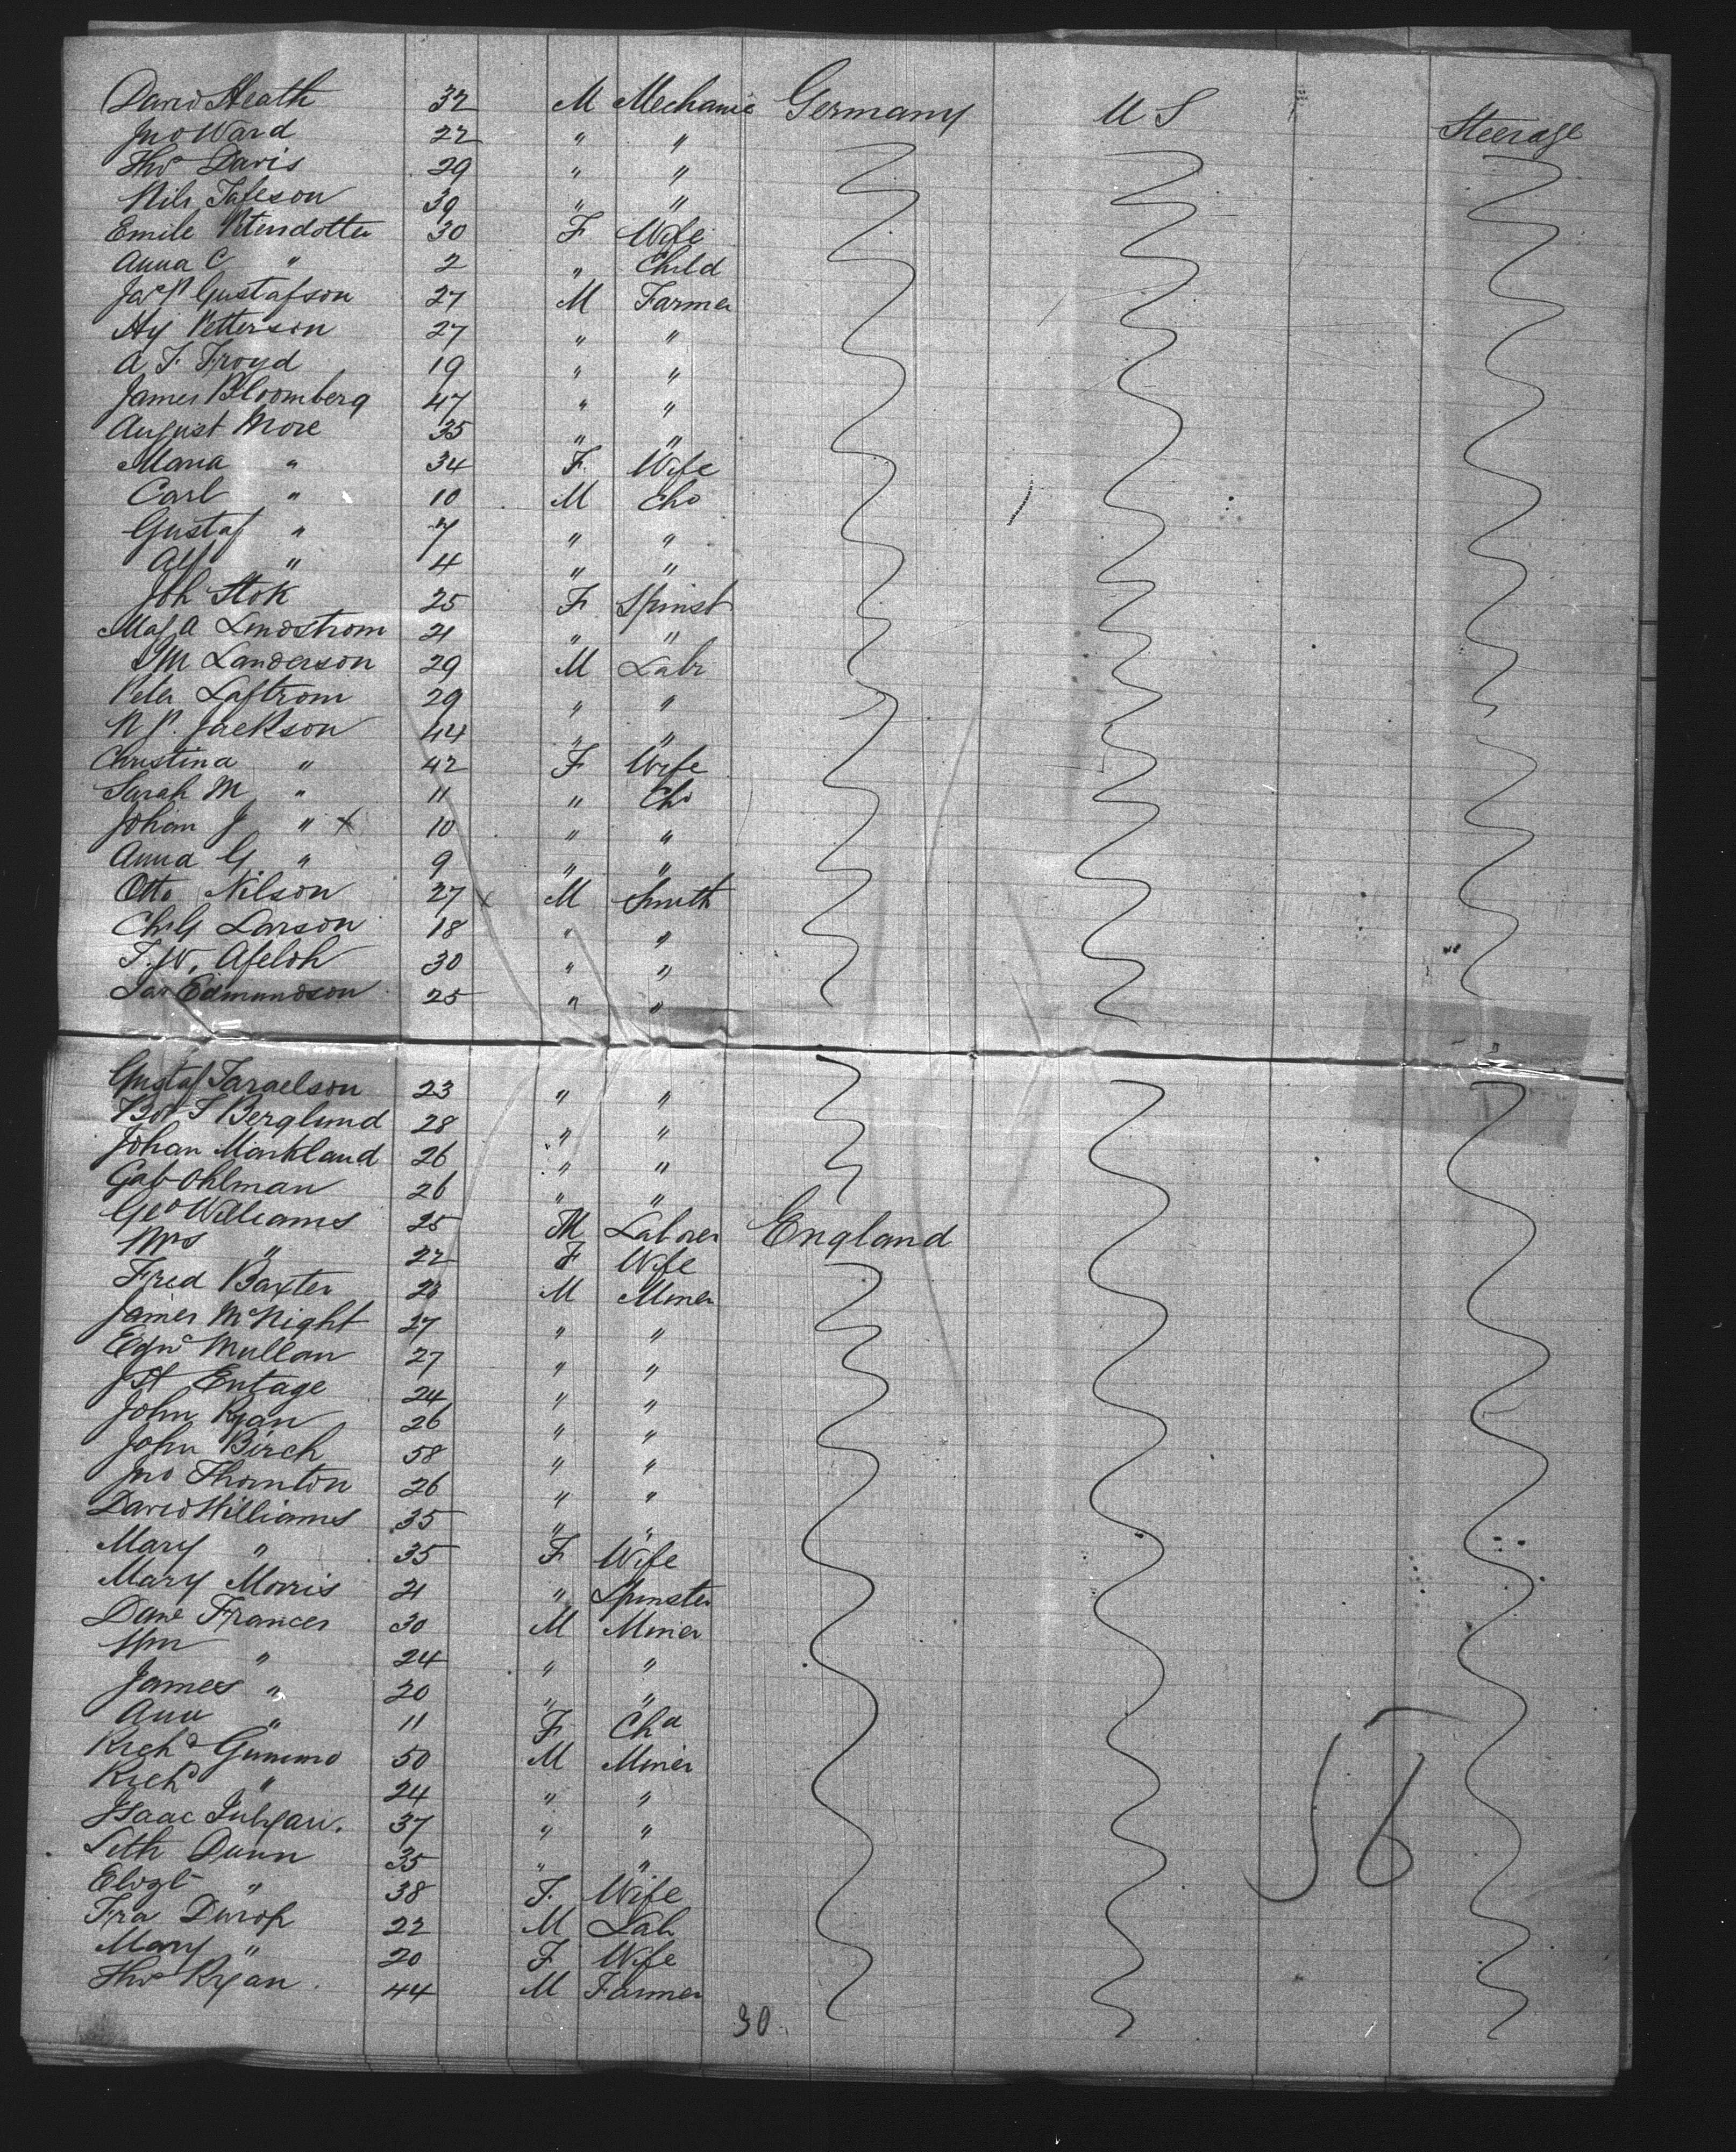 David Heath 32 M Mechanic Germany U S Steerage
Jno Ward 22 " "
Thos Davis 29 " "
Nils Tafleson 39 " "
Emile Petersdotter 30 F Wife
Anna C " 2 " Child
Jas P Gustafson 27 M Farmer
Hy Petterson 27 " "
A F Froyd 19 " "
James Bloomberg 47 " "
August More 35 " "
Maria " 34 F Wife
Carl " 10 M Chd
Gustaf " 7 " "
Alf " 4 " "
Joh Stok 25 F Spinst
Maj A Lindstrom 21 " "
Wm Landerson 29 M Labr
Peter Laftrom 29 " "
N P. Jackson 44 " "
Christina " 42 F Wife
Sarah M " 11 " Chd
Johan J " x 10 " "
Anna G " 9 " "
Otto Nilson 27 x M Smith
Chs G Larson 18 " "
F. W. Afeloh 30 " "
Jas Edmundson 25 " "
Gustaf Israelson 23 " "
Berglund 28 " "
Johan Markland 26 " "
Gab Ohlman 26 " "
Geo Williams 25 M Laborer England
Mrs " 22 F Wife
Fred Baxter 28 M Miner
James McNight 27 " "
Edwd Mullan 27 " "
J H Entage 24 " "
John Ryan 26 " "
John Birch 58 " "
Jno Thornton 26 " "
David Williams 35 " "
Mary " 35 F Wife
Mary Morris 21 " Spinster
Dane Frances 30 M Miner
Wm " 24 " "
James " 20 " "
Ann " 11 F Chd
Richd Gummo 50 M Miner
Richd " 24 " "
Isaac 37 " "
Seth Dunn 35 " "
Elizt " 38 F Wife
Fra Durop 22 M Lab
Mary " 20 F Wife
Thos Ryan 44 M Farmer
30